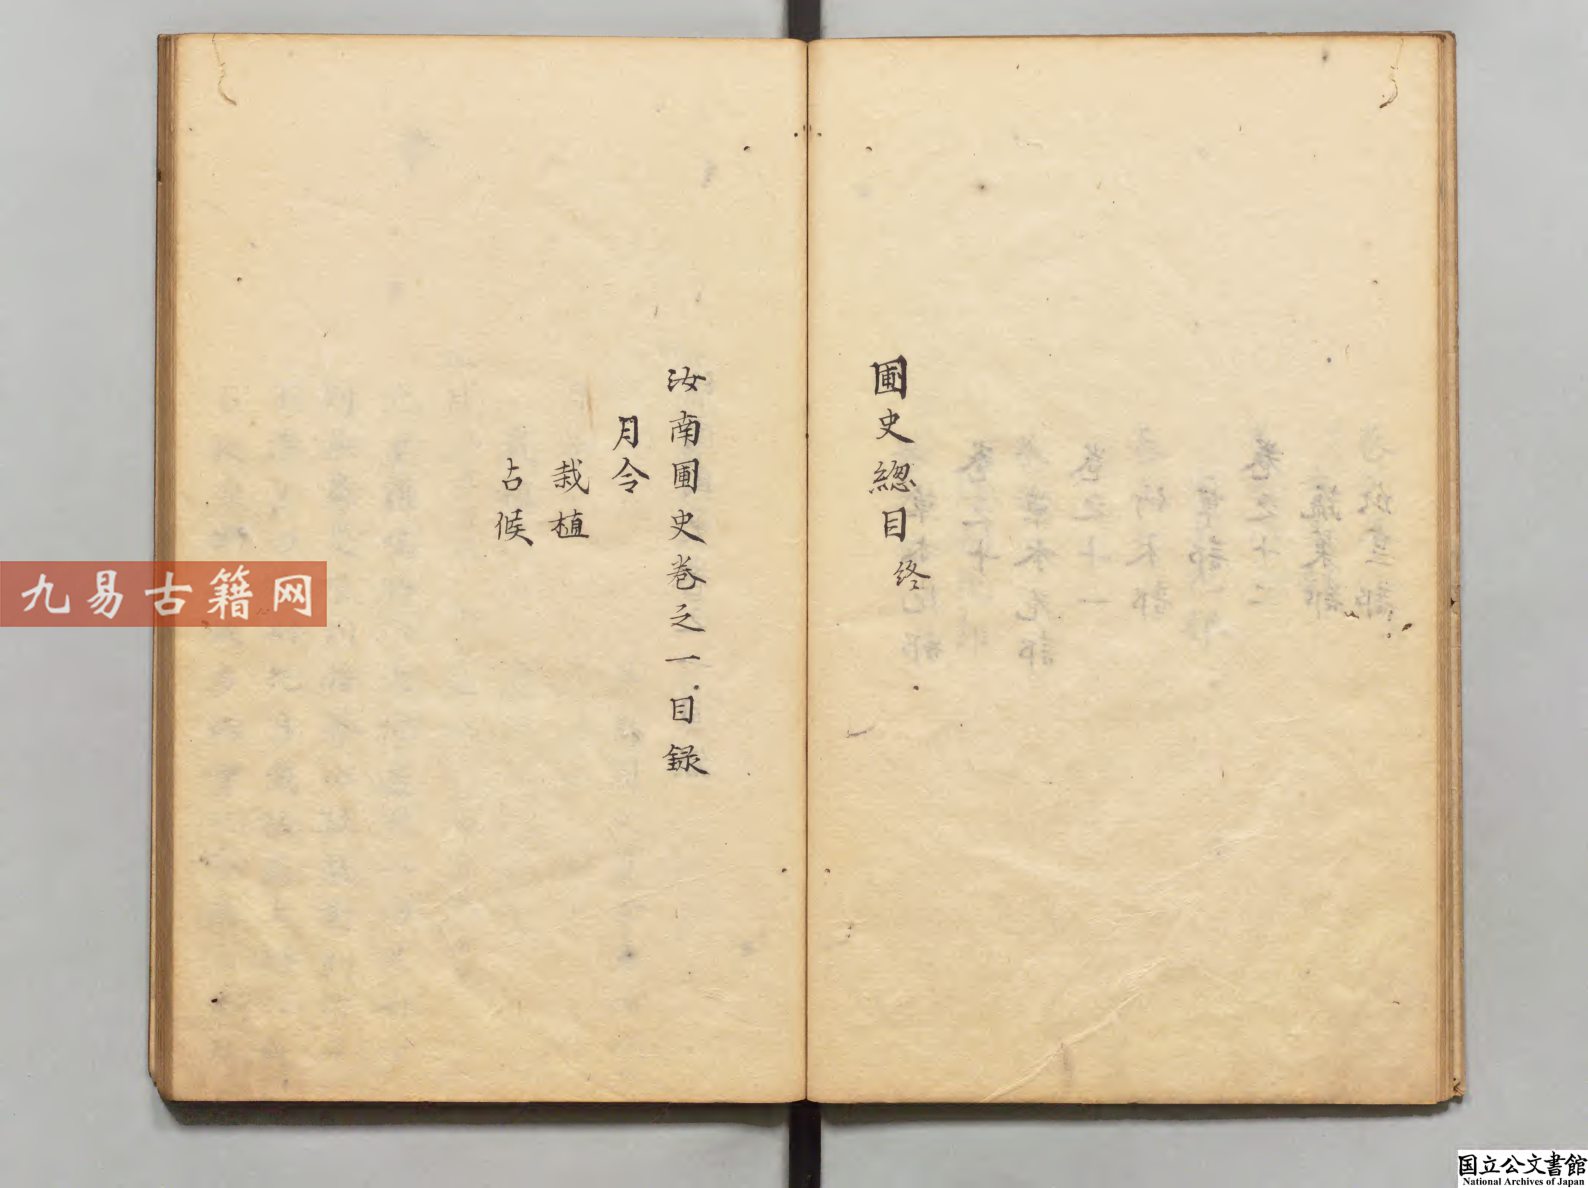 圃史總目終
汝南圃史卷之一目録
月令
栽植
占候
九易古籍网
国立公文書館
National Archives of Japan